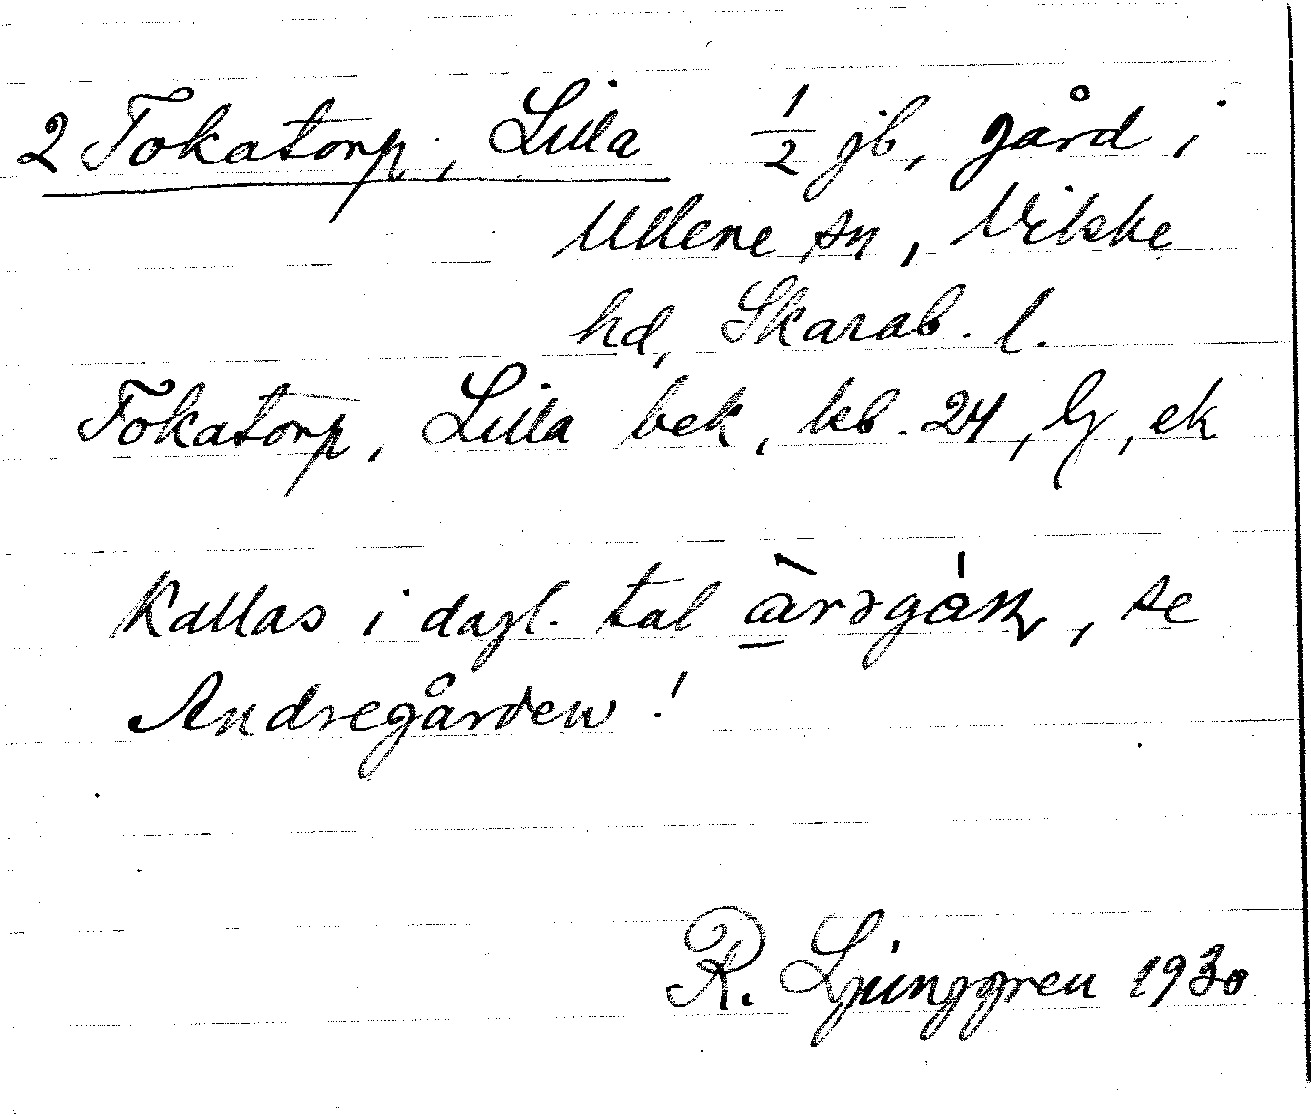 2 Tokatorp, Lilla ½ jb, gård i
Ullene sn, Vilske
hd, Skarab. l.
Tokatorp, Lilla bek, kb. 24, Gj, ek
Kallas i dagl. tal , se
Andregården!
R. Ljunggren 1930